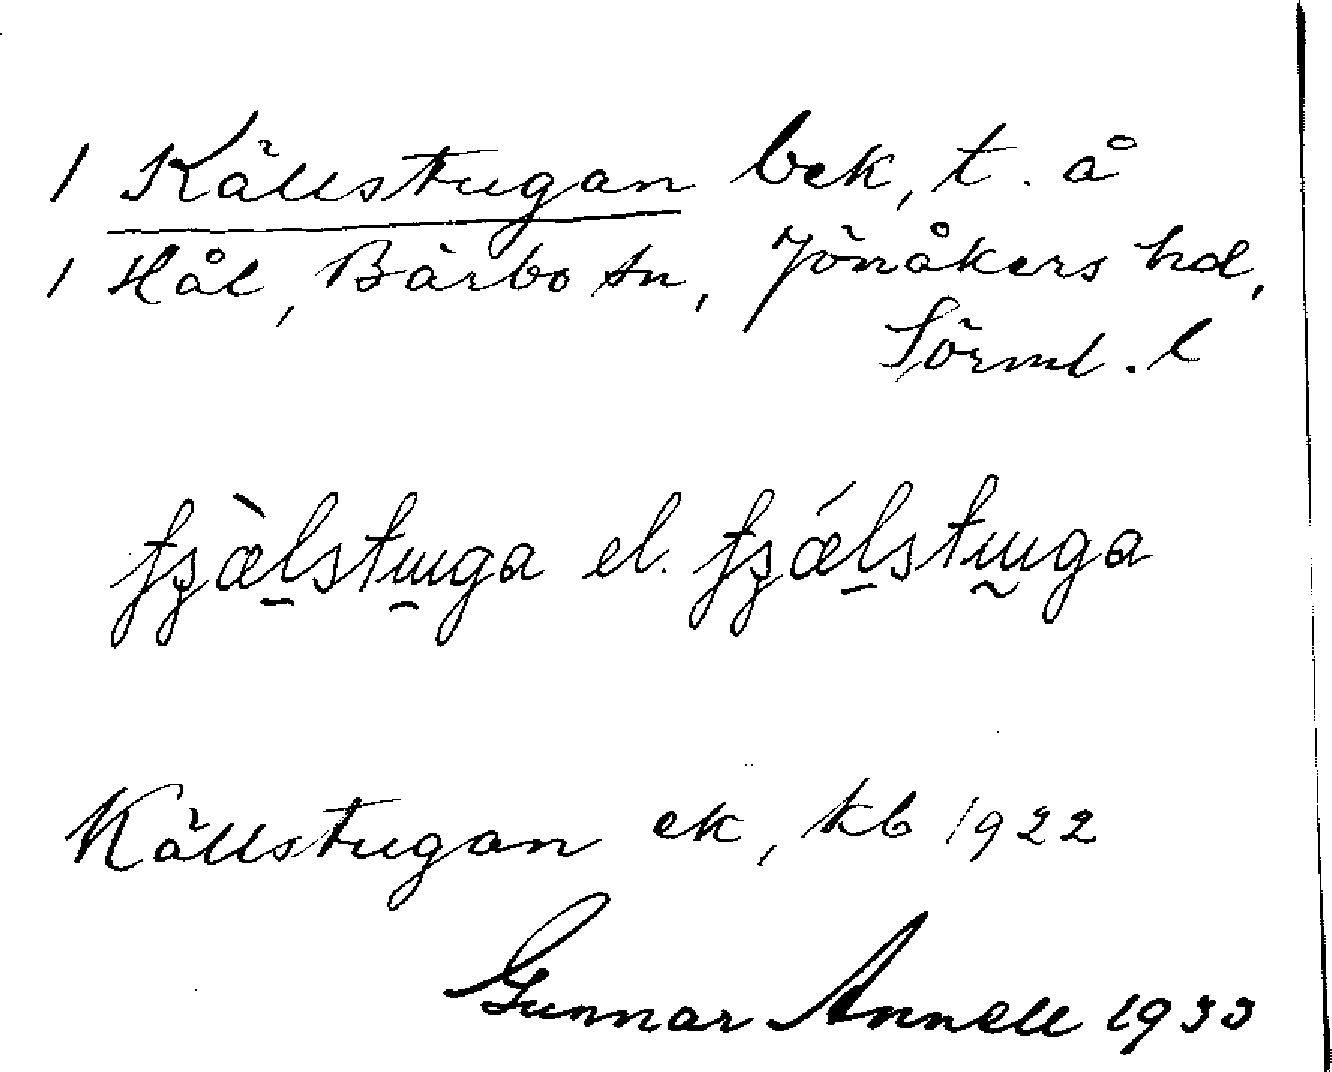 1 Källstugan bek, t. å
1 Hål, Bärbo sn, Jönåkers hd,
Sörml. l
el.
Källstugan ek, kb 1922
Gunnar Annell 1933